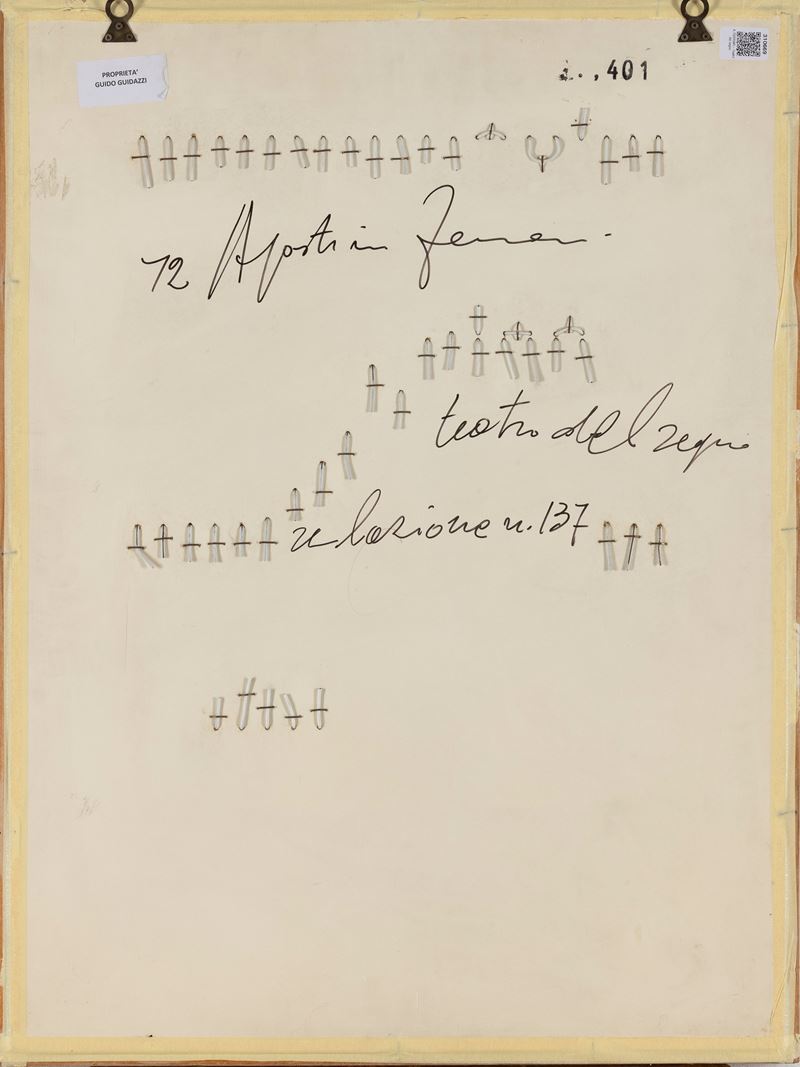 PROPRIETA'
GUIDO GUIDAZZI
310669
401
72 Agostino Ferrari
teatro del segno
relazione n. 137